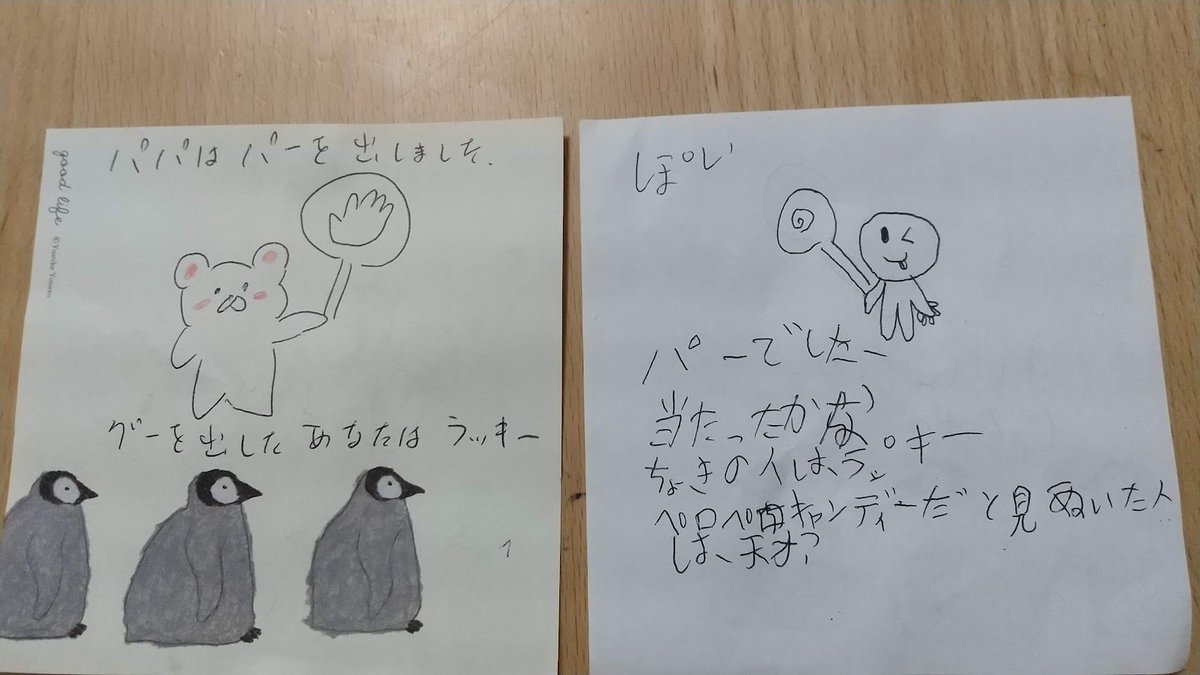 パパはパーを出しました.
good life
グーを出したあなたはラッキー
1
ぽい
パーでしたー
当たったかな
ちょきの人は、ラッキー
ペロペロキャンディーだと見ぬいた人
は、天才?